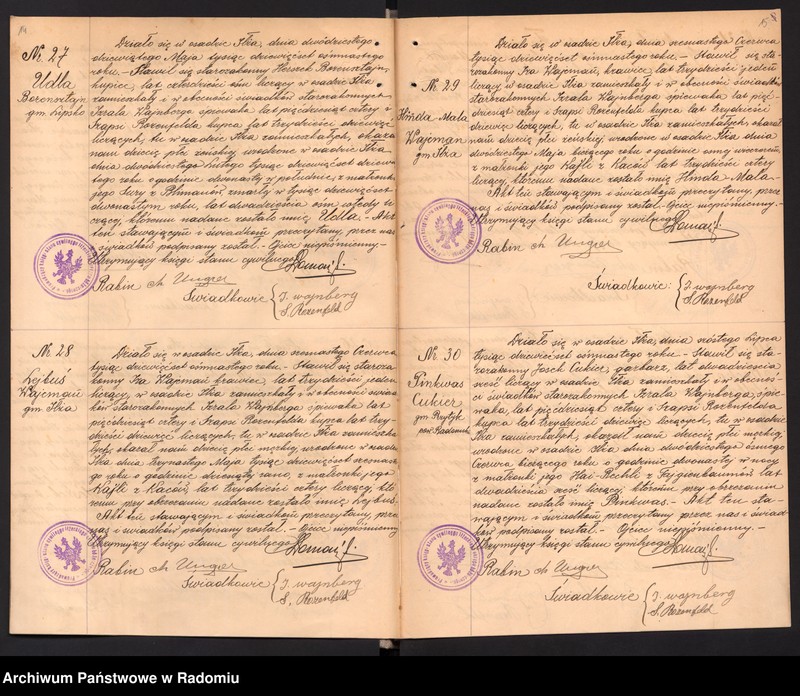 14
Nr 27
Udla
Boronsztajn
gm. Lipsko
Działo się w osadzie Iłża, dnia dwódziestego
dziewiątego Maja tysiąc dziewięćset ośmnastego
roku. – Stawił się starozakonny Herszek Boronsztajn,
kupiec, lat czterdzieści ośm liczący w osadzie Iłża
zamieszkały i w obecności świadków starozakonnych
Izrala Wajnberga śpiewaka lat pięćdziesiąt cztery i
Szapsi Rozenfelda kupca lat trzydzieści dziewięć
liczących, tu w osadzie Iłża zamieszkałych, okazał
nam dziecię płci żeńskiej urodzone w osadzie Iłża
dnia dwódziestego lutego tysiąc dziewięćset
roku o godzinie dwunastej w południe, z małżonki
jego Sury z zmarłej w tysiąc dziewięćset
dwunastym roku, lat dwadzieścia ośm
któremu nadane zostało imię Udla. – Akt
ten stawającym i świadkom przeczytany, przez nas
i świadków podpisany został. – Ojciec niepiśmienny. –
Utrzymujący księgi stanu cywilnego
Rabin Unger
Świadkowie { I. wajnberg
S. Rozenfeld
Nr 28
Lejbuś
Wajcman
gm Iłża
Działo się w osadzie Iłża, dnia szesnastego Czerwca
tysiąc dziewięćset ośmnastego roku. – Stawił się staroza-
konny Ira Wajcman krawiec, lat trzydzieści jeden
liczący, w osadzie Iłża zamieszkały i w obecności świad-
ków starozakonnych Izrala Wajnberga śpiewaka lat
pięćdziesiąt cztery i Szapsi Rozenfelda kupca lat trzy-
dzieści dziewięć liczących, tu w osadzie Iłża zamieszka-
łych, okazał nam dziecię płci męzkiej urodzone w osadzie
Iłża dnia trzynastego Maja tysiąc dziewięćset
roku o godzinie dziesiątej rano, z małżonki jego
Kajli z Kaców, lat trzydzieści cztery liczącej, któ-
remu przy obrzezaniu nadane zostało imię Lejbuś. –
Akt ten stawającym i świadkom przeczytany, przez
nas i świadków podpisany został. – Ojciec niepiśmienny
Utrzymujący księgi stanu cywilnego
Rabin Unger
Świadkowie { I. wajnberg
S. Rozenfeld
15
Nr 29
Hinda Mala
Wajcman
gm Iłża
Działo się w osadzie Iłża, dnia szesnastego Czerwca
tysiąc dziewięćset ośmnastego roku. – Stawił się sta-
rozakonny Ira Wajcman, krawiec, lat trzydzieści jeden
liczący w osadzie Iłża zamieszkały i w obecności świadków
starozakonnych Izrala Wajnberga śpiewaka lat pięć-
dziesiąt cztery i Szapsi Rozenfelda kupca lat trzydzieści
dziewięć liczących, tu w osadzie Iłża zamieszkałych, okazał
nam dziecię płci żeńskiej urodzone w osadzie Iłża dnia
dwódziestego Maja bieżącego roku o godzinie ósmej wieczorem
z małżonki jego Kajli z Kaców lat trzydzieści cztery
liczącej, któremu nadane zostało imię Hinda Mala. –
Akt ten stawającym i świadkom przeczytany, przez
nas i świadków podpisany został. – Ojciec niepiśmienny. –
Utrzymujący księgi stanu cywilnego
Rabin Unger
Świadkowie: { I. wajnberg
S. Rozenfeld
Nr 30
Pinkwas
Cukier
gm. Przytyk
pow. Radomski
Działo się w osadzie Iłża, dnia szóstego Lipca
tysiąc dziewięćset ośmnastego roku. – Stawił się sta-
rozakonny Josek Cukier, garbarz, lat dwadzieścia
sześć liczący w osadzie Iłża zamieszkały i w obecnoś-
ci świadków starozakonnych Izrala Wajnberga, śpie-
waka, lat pięćdziesiąt cztery i Szapsi Rozenfelda
kupca lat trzydzieści dziewięć liczących, tu w osadzie
Iłża zamieszkałych, okazał nam dziecię płci męzkiej,
urodzone w osadzie Iłża dnia dwódziestego ósmego
Czerwca bieżącego roku o godzinie dwunastej w nocy
z małżonki jego z Frydenbaumów lat
dwadzieścia sześć liczącej, któremu przy obrzezaniu
nadane zostało imię Pinkwas. – Akt ten sta-
wającym i świadkom przeczytany przez nas i świad-
ków podpisany został. – Ojciec niepiśmienny. –
Utrzymujący księgi stanu cywilnego
Rabin Unger
Świadkowie { I. wajnberg
S. Rozenfeld
Archiwum Państwowe w Radomiu